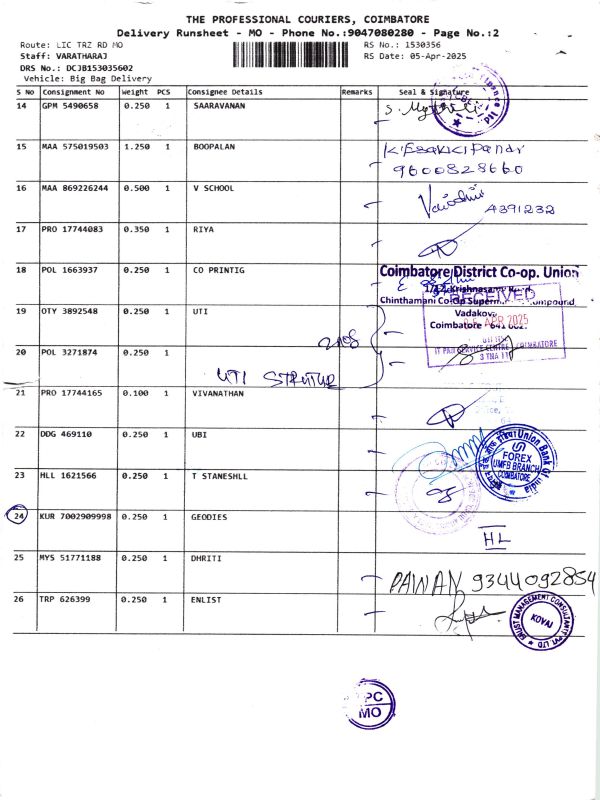 THE PROFESSIONAL COURIERS, COIMBATORE
Delivery Runsheet - MO - Phone No.:9047080280 - Page No.:2
Route: LIC TRZ RD MO
RS No.: 1530356
Staff: VARATHARAJ
RS Date: 05-Apr-2025
DRS No.: DCJB153035602
Vehicle: Big Bag Delivery
S No Consignment No Weight PCS Consignee Details Remarks Seal & Signature
14 GPM 5490658 0.250 1 SAARAVANAN
15 MAA 575019503 1.250 1 BOOPALAN
K. Esakki Pandi
9600828660
16 MAA 869226244 0.500 1 V SCHOOL
4391232
17 PRO 17744083 0.350 1 RIYA
18 POL 1663937 0.250 1 CO PRINTIG
Coimbatore District Co-op. Union
Chinthamani Co-op
19 OTY 3892548 0.250 1 UTI
RECEIVED
Vadakova
APR 2025
Coimbatore
20 POL 3271874 0.250 1
UTI
COIMBATORE
21 PRO 17744165 0.100 1 VIVANATHAN
22 DDG 469110 0.250 1 UBI
Union Bank of India
FOREX
UMFB BRANCH
COIMBATORE
23 HLL 1621566 0.250 1 T STANESHLL
24 KUR 7002909998 0.250 1 GEODIES
HL
25 MYS 51771188 0.250 1 DHRITI
PAWAN 9344092854
26 TRP 626399 0.250 1 ENLIST
MANAGEMENT CONSULTANTY PVT LTD
KOVAI
PC
MO